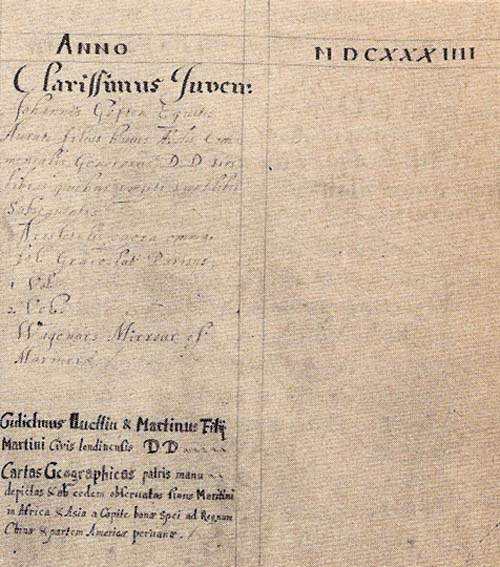 ANNO MDCXXXIIII
Clarissimus Juven:
Johannis Equitis
Aurat filius huius Ædis Com
mensalis Generosus D D
libris quibus empti sunt libri
Subsequentes
Aristotelis opera omnia
Græco lat Parisiis
1 Vol.
2 Vol.
Wagenars Mirrour of
Marners
Gulielmus & Martinus Filij
Martini Civis londinensis DD
Cartas Geographicas patris manu
depictas & ab eodem observatas sinus Maritimi
in Africa & Asia a Capite bonæ Spei ad Regnum
Chinæ & partem Americæ peruanæ.